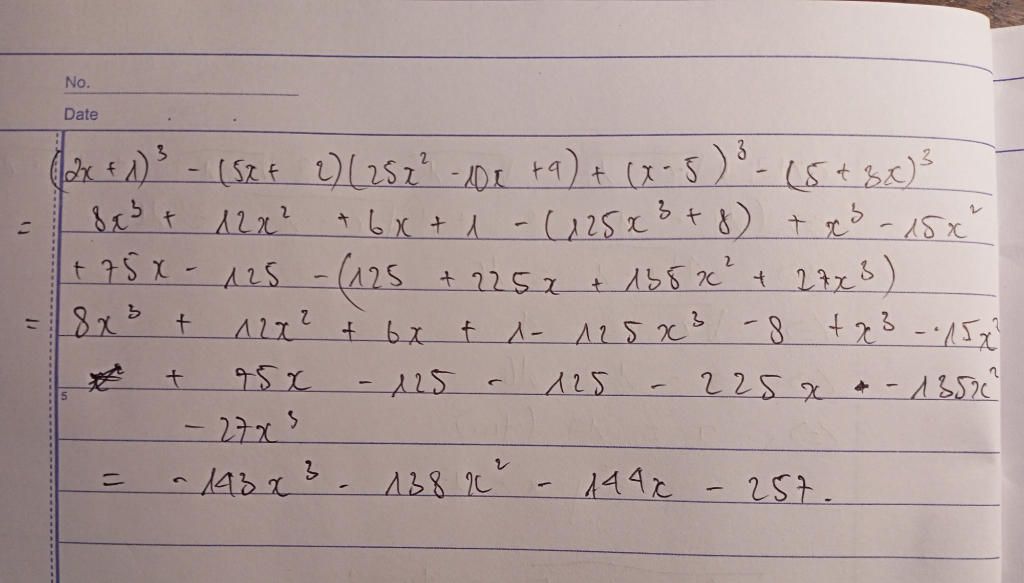 No.
Date
(2x + 1)³ - (5x + 2)(25x² - 10x + 4) + (x - 5)³ - (5 + 3x)³
= 8x³ + 12x² + 6x + 1 - (125x³ + 8) + x³ - 15x²
+ 75x - 125 - (125 + 225x + 135x² + 27x³)
= 8x³ + 12x² + 6x + 1 - 125x³ - 8 + x³ - 15x²
+ 75x - 125 - 125 - 225x - 135x²
5
- 27x³
= - 143x³ - 138x² - 144x - 257.